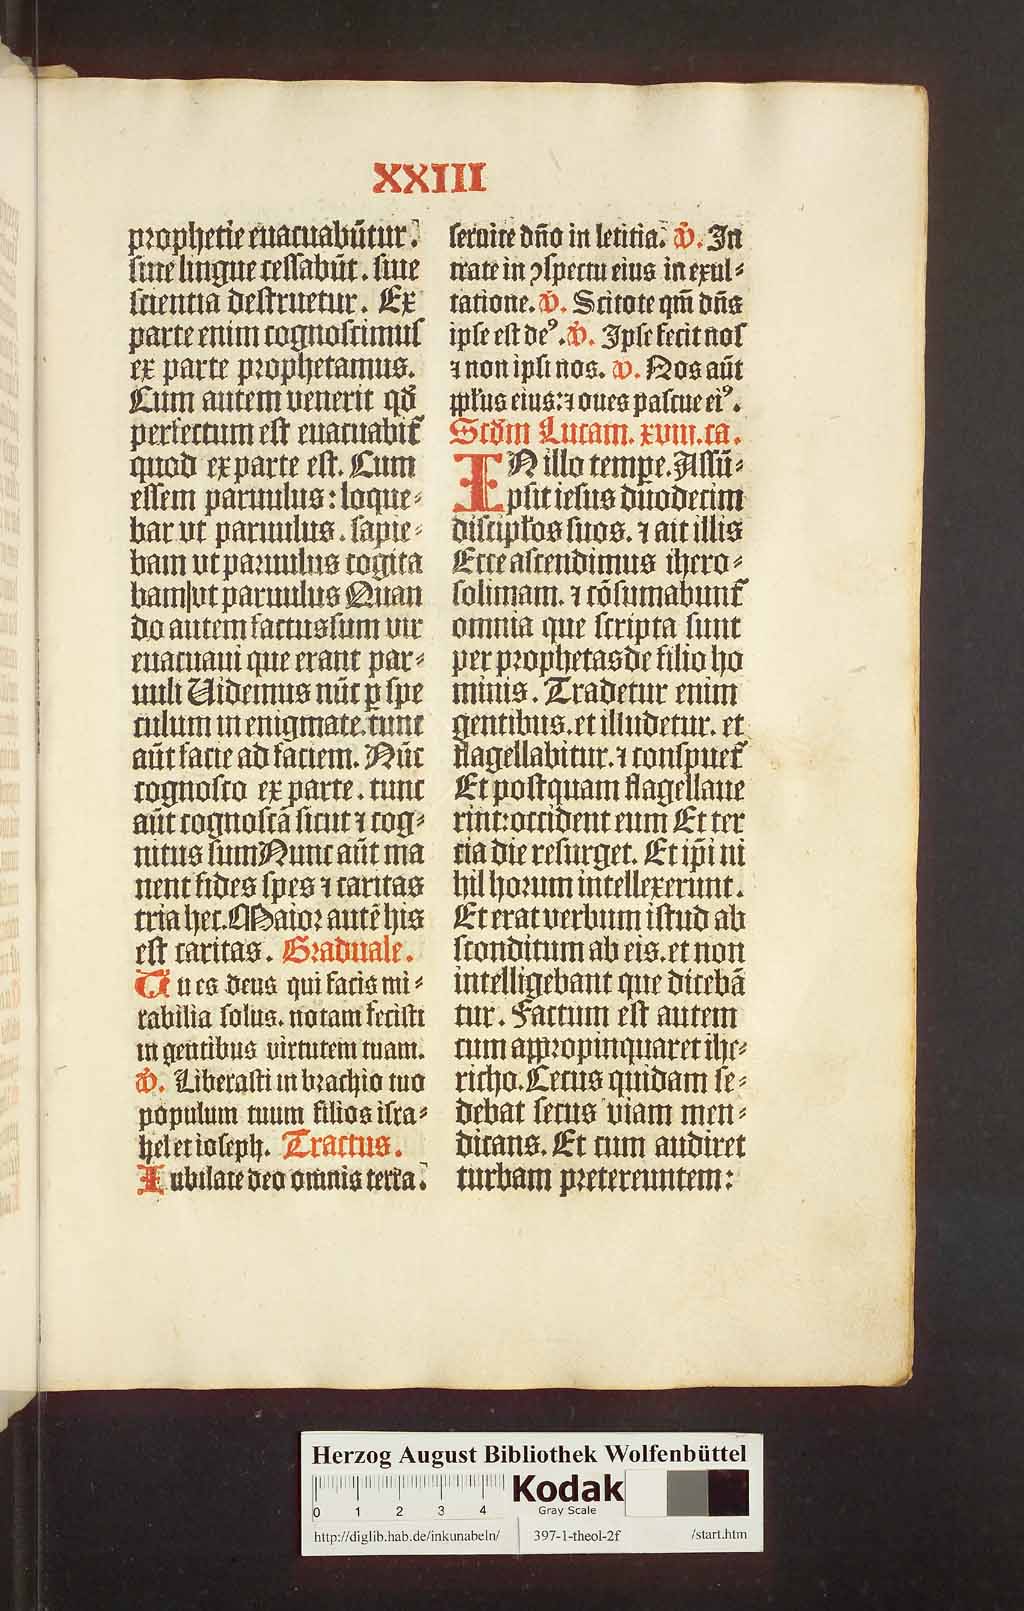 XXIII
prophetie euacuabūtur.
siue lingue cessabūt. siue
scientia destruetur. Ex
parte enim cognoscimus
ex parte prophetamus.
Cum autem uenerit qđ
perfectum est euacuabit᷑
quod ex parte est. Cum
essem paruulus: loque⸗
bar vt paruulus. sapie⸗
bam vt paruulus cogita
bam|vt paruulus Quan
do autem factus sum vir
euacuaui que erant par⸗
uuli Uidemus nūc ꝑ spe
culum in enigmate. tunc
aūt facie ad faciem. Nūc
cognosco ex parte. tunc
aūt cognoscā sicut ⁊ cog⸗
nitus sum Nunc aūt ma
nent fides spes ⁊ caritas
tria hec. Maior autē his
est caritas. Graduale.
Tu es deus qui facis mi⸗
rabilia solus. notam fecisti
in gentibus virtutem tuam.
℣. Liberasti in brachio tuo
populum tuum filios isra⸗
hel et ioseph. Tractus.
Iubilate deo omnis terra.
seruite dño in letitia. ℣. In
trate in ↄspectu eius in exul⸗
tatione. ℣. Scitote qm̄ dñs
ipse est deꝰ. ℣. Ipse fecit nos
⁊ non ipsi nos. ℣. Nos aūt
ppl̄us eius: ⁊ oues pascue eiꝰ.
Scđm Lucam. xviii. ca.
IN illo tempe. Assū⸗
psit iesus duodecim
discipl̄os suos. ⁊ ait illis
Ecce ascendimus ihero⸗
solimam. ⁊ cōsumabunt᷑
omnia que scripta sunt
per prophetas de filio ho
minis. Tradetur enim
gentibus. et illudetur. et
flagellabitur. ⁊ conspuet᷑
Et postquam flagellaue
rint: occident eum Et ter
tia die resurget. Et ip̄i ni
hil horum intellexerunt.
Et erat uerbum istud ab
sconditum ab eis. et non
intelligebant que dicebā
tur. Factum est autem
cum appropinquaret ihe⸗
richo. Cecus quidam se⸗
debat secus viam men⸗
dicans. Et cum audiret
turbam pretereuntem:
Herzog August Bibliothek Wolfenbüttel
0 1 2 3 4
Kodak
Gray Scale
http://diglib.hab.de/inkunabeln/ 397-1-theol-2f /start.htm